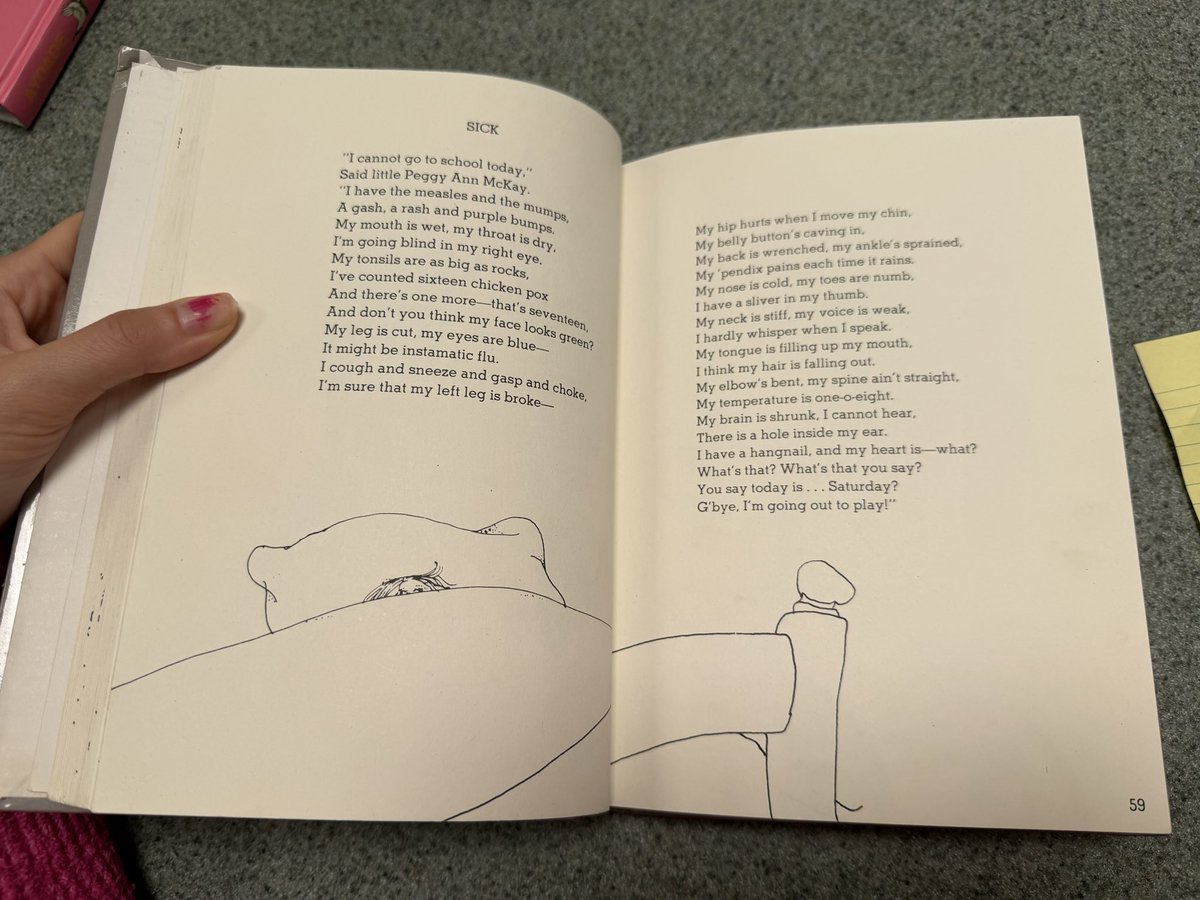 SICK
"I cannot go to school today,"
Said little Peggy Ann McKay.
"I have the measles and the mumps,
A gash, a rash and purple bumps.
My mouth is wet, my throat is dry,
I'm going blind in my right eye.
My tonsils are as big as rocks,
I've counted sixteen chicken pox
And there's one more—that's seventeen,
And don't you think my face looks green?
My leg is cut, my eyes are blue—
It might be instamatic flu.
I cough and sneeze and gasp and choke,
I'm sure that my left leg is broke—
My hip hurts when I move my chin,
My belly button's caving in,
My back is wrenched, my ankle's sprained,
My 'pendix pains each time it rains.
My nose is cold, my toes are numb,
I have a sliver in my thumb.
My neck is stiff, my voice is weak,
I hardly whisper when I speak.
My tongue is filling up my mouth,
I think my hair is falling out.
My elbow's bent, my spine ain't straight,
My temperature is one-o-eight.
My brain is shrunk, I cannot hear,
There is a hole inside my ear.
I have a hangnail, and my heart is—what?
What's that? What's that you say?
You say today is . . . Saturday?
G'bye, I'm going out to play!"
59